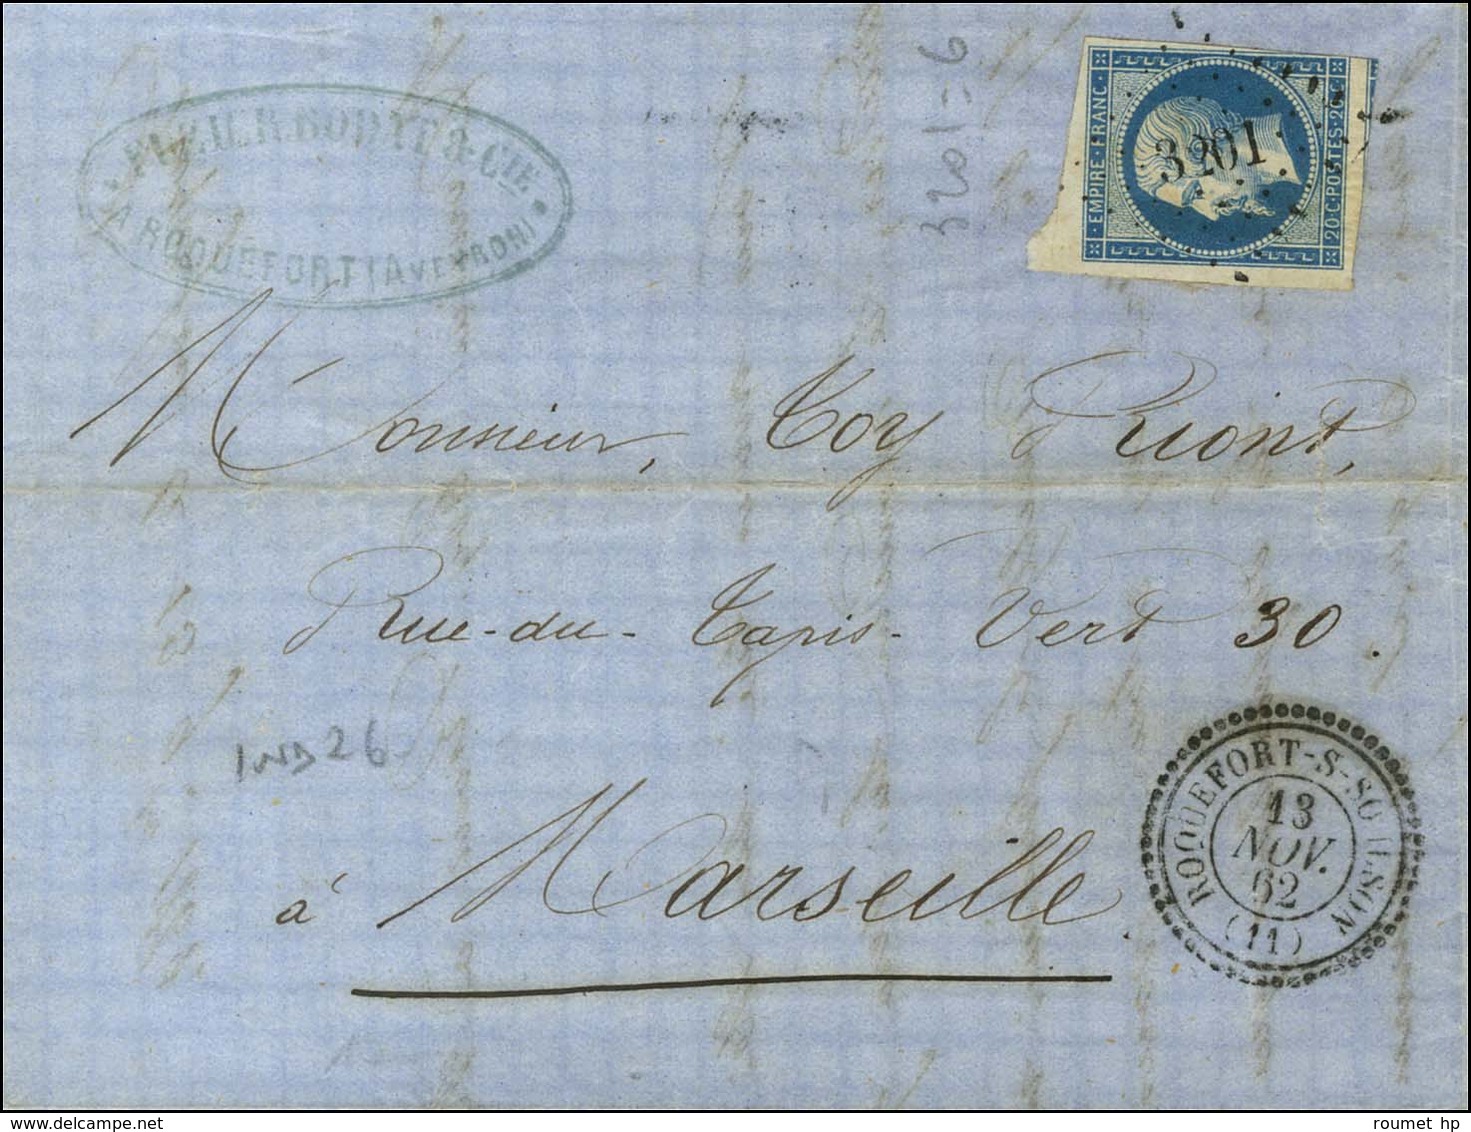 & Cie
A ROQUEFORT (AVEYRON)
3201=6
EMPIRE · FRANC ·
3201
20 · C · POSTES · 20 · C
Monsieur, Toy Riont,
Rue-du-Tapis-Vert 30.
IND 26
à Marseille.
ROQUEFORT-S-SOULSON
13
NOV.
62
(11)
roumet hp
delcampe.net